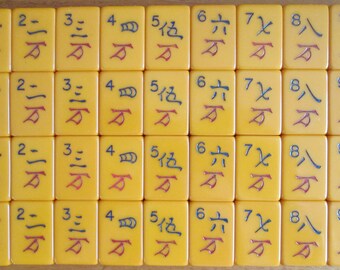 2 二 3 三 4 四 5 伍 6 六 7 七 8 八
万 万 万 万 万 万 万
2 二 3 三 4 四 5 伍 6 六 7 七 8 八
万 万 万 万 万 万 万
2 二 3 三 4 四 5 伍 6 六 7 七 8 八
万 万 万 万 万 万 万
2 二 3 三 4 四 5 伍 6 六 7 七 8 八
万 万 万 万 万 万 万